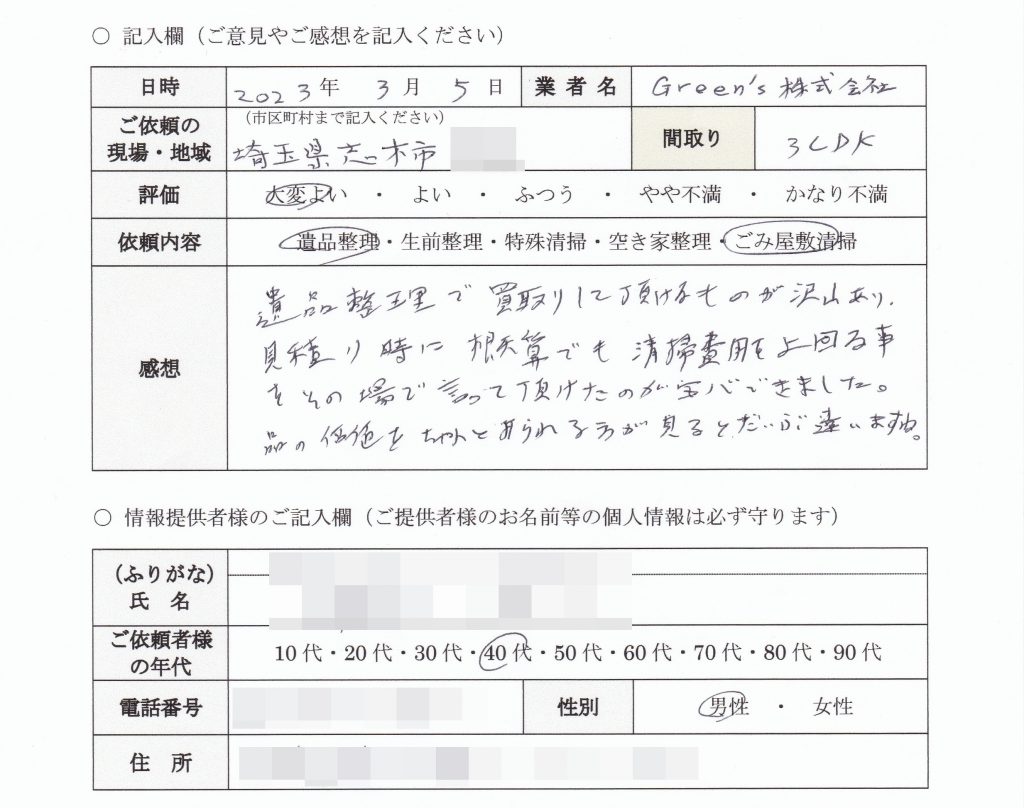 ○ 記入欄（ご意見やご感想を記入ください）
日時 2023年 3月 5日 業者名 Green's 株式会社
ご依頼の現場・地域 （市区町村まで記入ください） 間取り 3LDK
埼玉県志木市
評価 大変よい ・ よい ・ ふつう ・ やや不満 ・ かなり不満
依頼内容 遺品整理・生前整理・特殊清掃・空き家整理・ごみ屋敷清掃
感想
遺品整理で買取りして頂けるものが沢山あり、
見積り時に概算でも清掃費用を上回る事
をその場で言って頂けたのが安心できました。
品の価値をちゃんとわかられる方が見るとだいぶ違いますね。
○ 情報提供者様のご記入欄（ご提供者様のお名前等の個人情報は必ず守ります）
（ふりがな）
氏 名
ご依頼者様の年代 10代・20代・30代・40代・50代・60代・70代・80代・90代
電話番号 性別 男性 ・ 女性
住 所